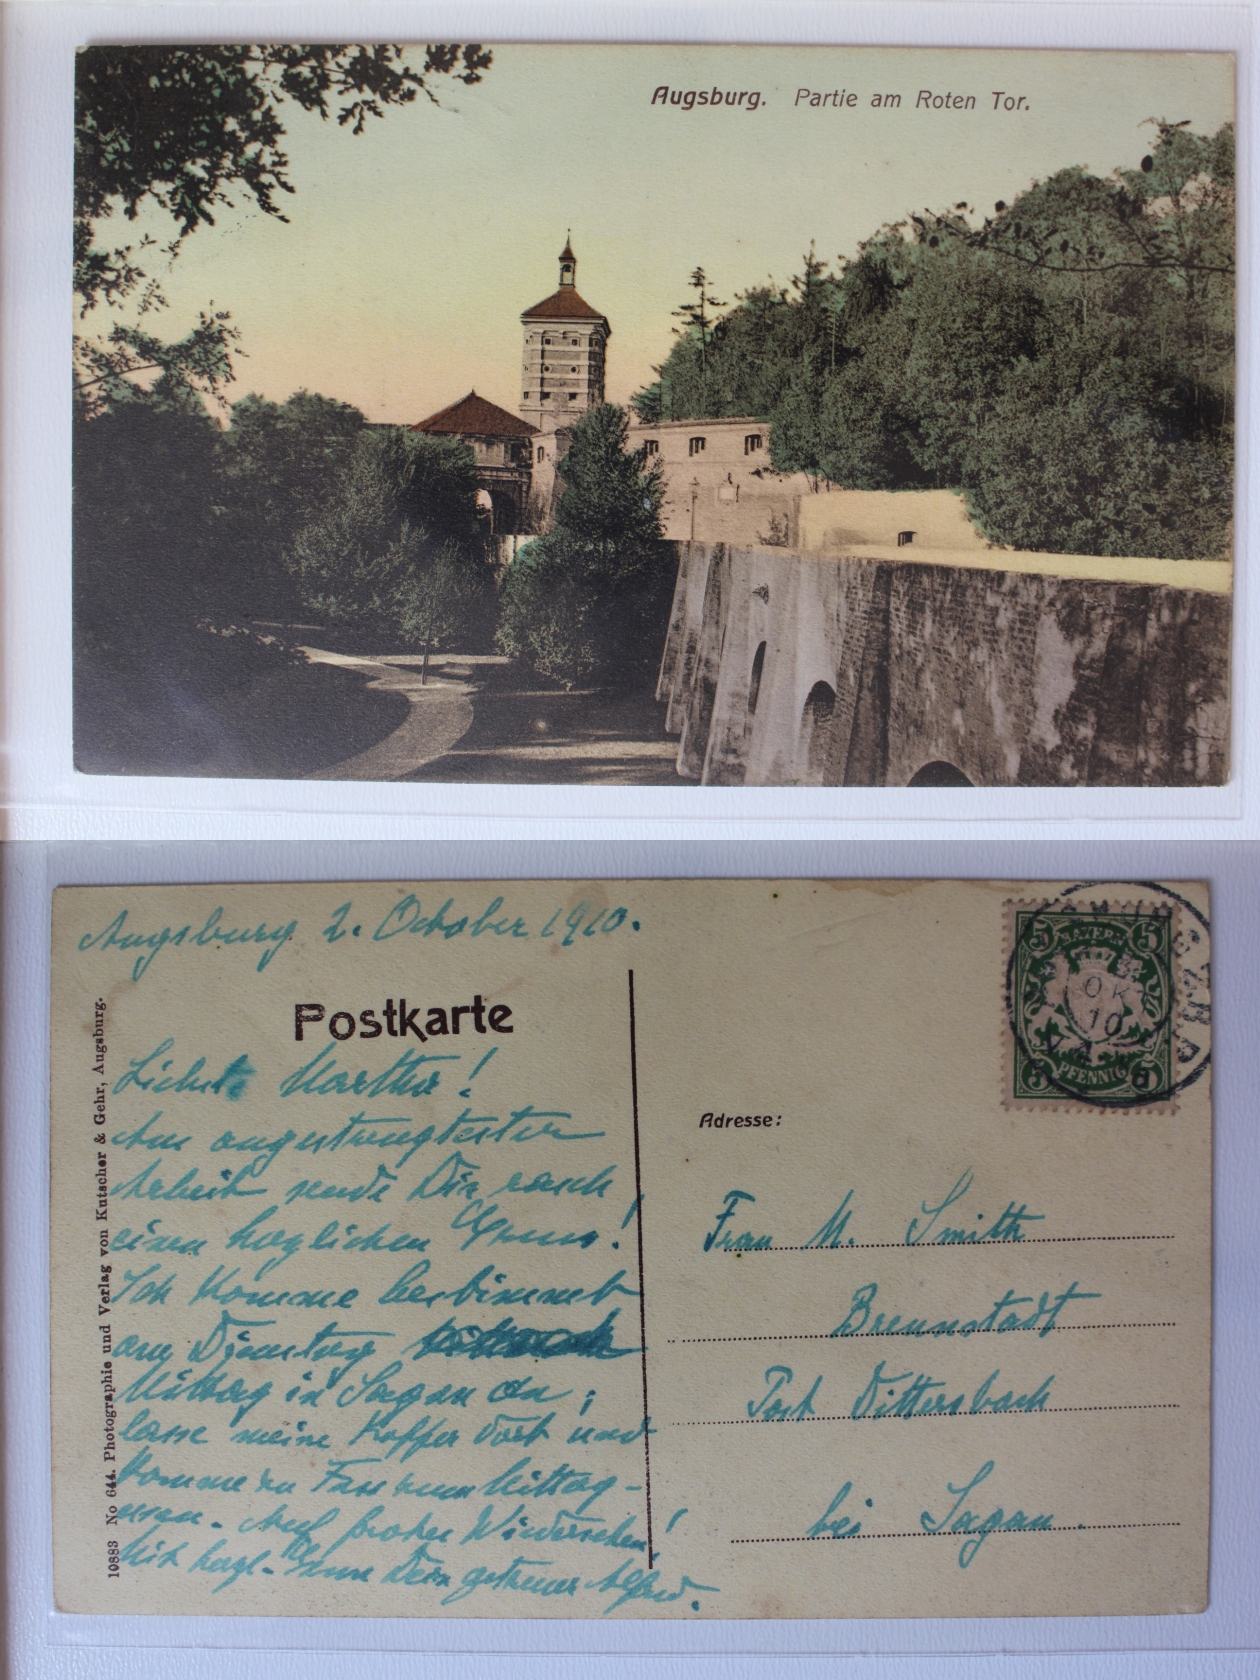 Augsburg. Partie am Roten Tor.
Augsburg 2. October 1910.
Postkarte
Liebste Martha!
Aus angestrengtester
Arbeit sende Dir rasch
einen herzlichen Gruss!
Ich komme bestimmt
am Dienstag
Mittag in Sagan an;
lasse meine Koffer dort und
komme zu Fuss zum Mittag-
essen. Auf frohes Wiedersehen!
Mit herzl. Gruss Dein getreuer Alfred.
10883 No 644. Photographie und Verlag von Kutscher & Gehr, Augsburg.
BAYERN
5 5
OKT
10
PFENNIG
5 5
Adresse:
Frau M. Smith
Brennstadt
Post Dittersbach
bei Sagan.